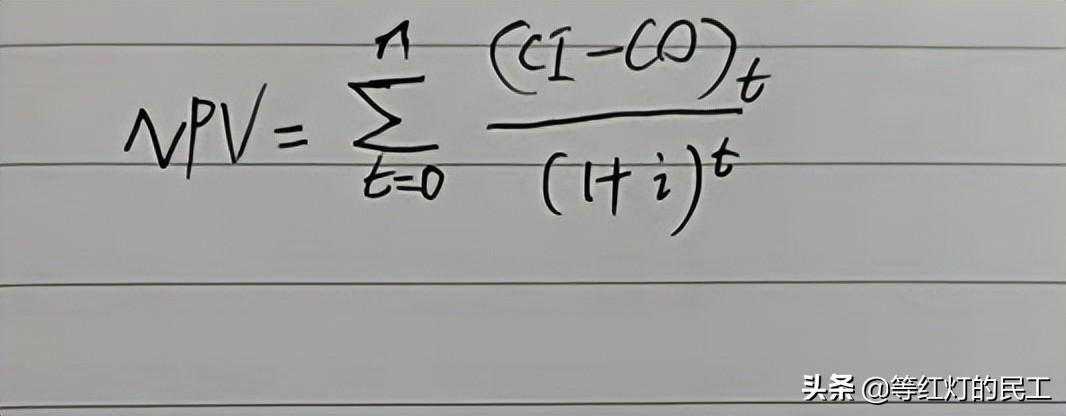 NPV = \sum_{t=0}^{n} \frac{(CI-CO)_t}{(1+i)^t}
头条 @等红灯的民工